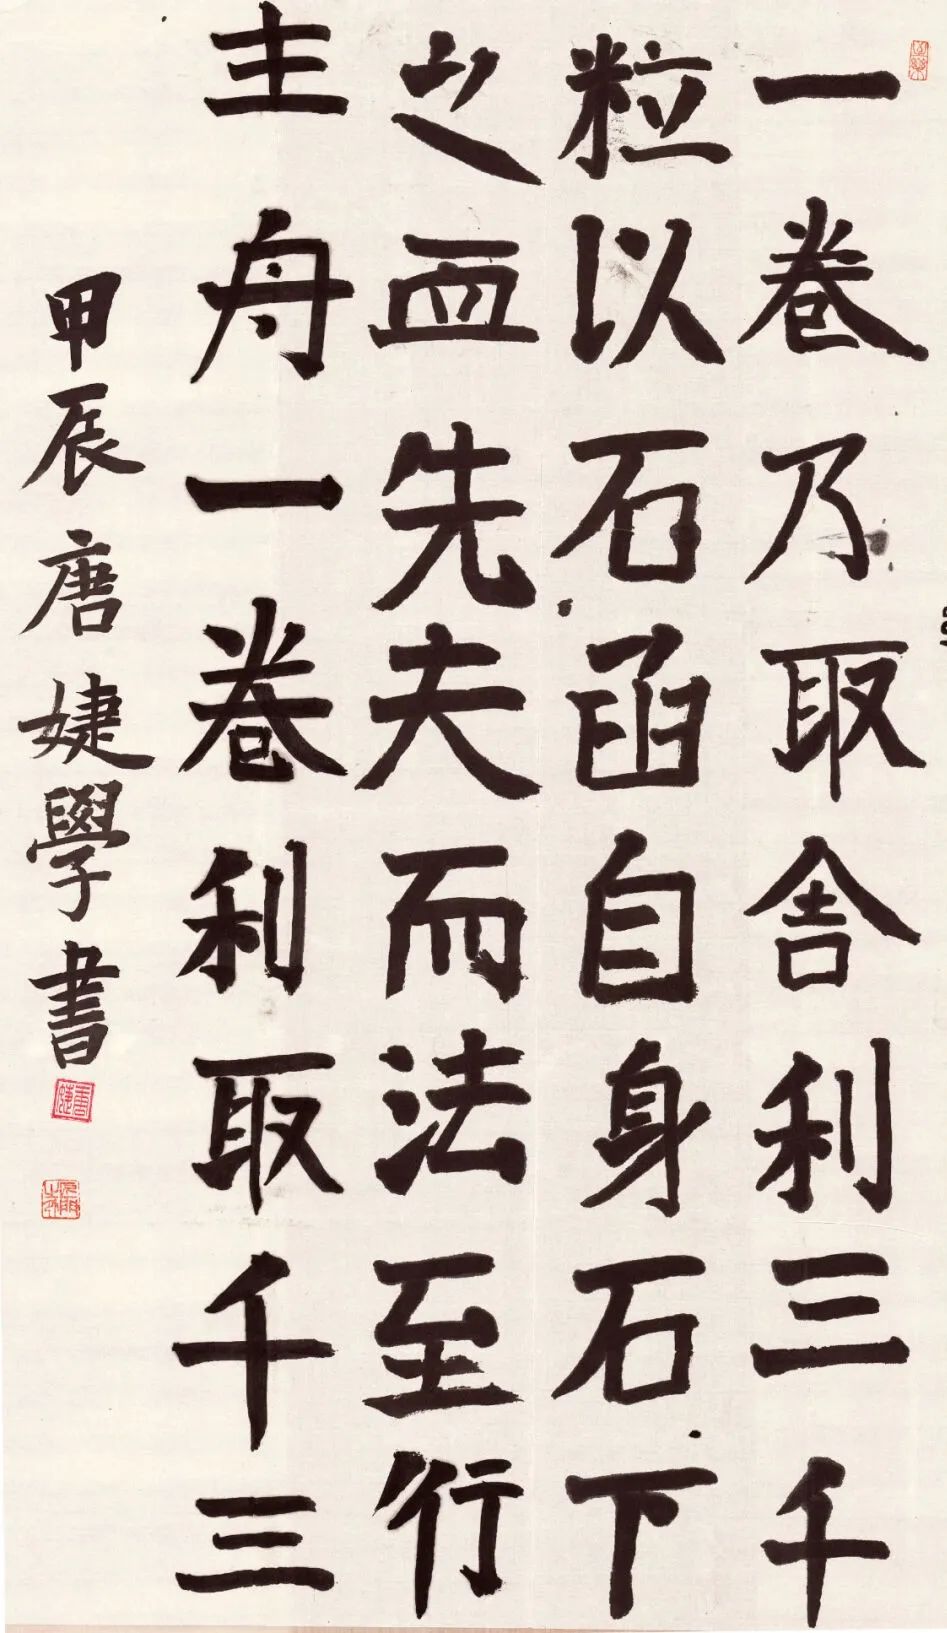 一卷乃取舍利三千
粒以石函自身石下
之皿先夫而法至行
主舟一卷利取千三
甲辰唐婕學書